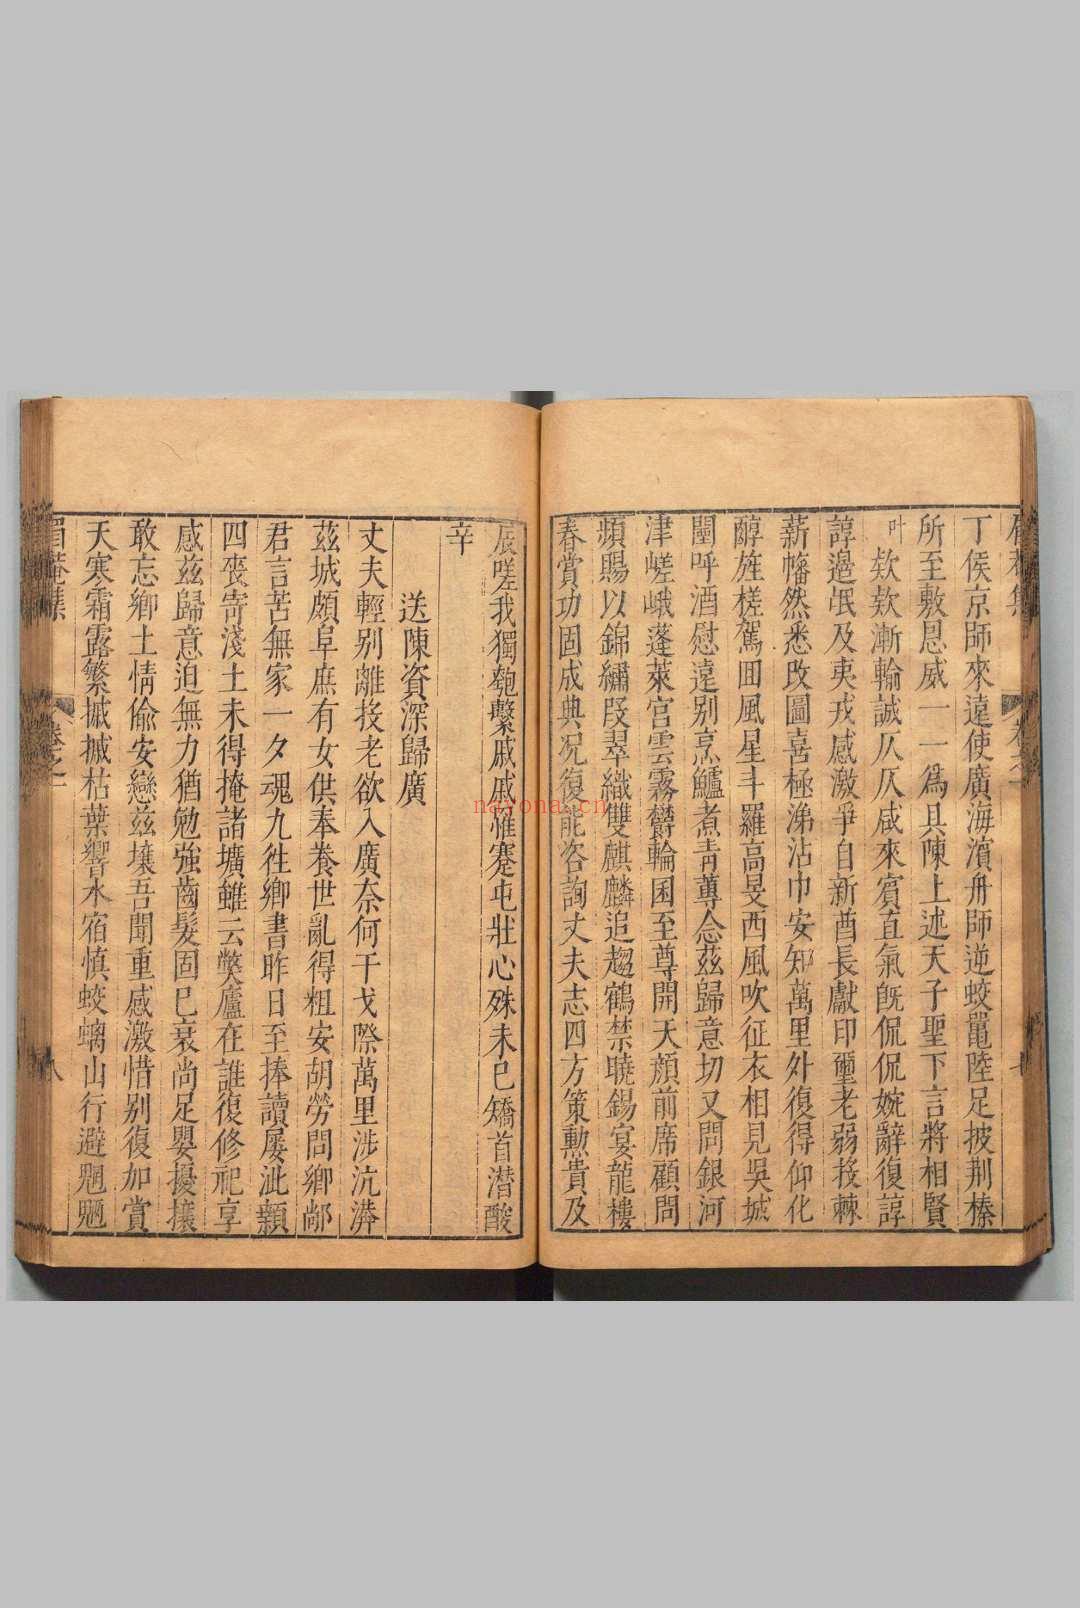 丁侯京師來遠使廣海濱舟師逆蛟鼉陸足披荆榛
所至敷恩威一一為具陳上述天子聖下言將相賢
叶欵欵漸輸誠仄仄咸來賓直氣旣侃侃婉辭復諄
諄邉氓及夷戎感激爭自新酋長獻印璽老弱投棘
薪幡然悉改圖喜極涕沾巾安知萬里外復得仰化
醇旌槎駕囬風星斗羅高旻西風吹征衣相見吳城
闉呼酒慰遠别烹鱸煮靑蓴念茲歸意切又問銀河
津嵯峨蓬萊宫雲霧欝輪囷至尊開天顔前席顧問
頻賜以錦繡段翠織雙麒麟追趨鶴禁曉錫宴龍樓
春賞功固成典况復能咨詢丈夫志四方策勲貴及
辰嗟我獨匏繫戚戚惟蹇屯壯心殊未已矯首潜酸
辛
送陳資深歸廣
丈夫輕别離投老欲入廣奈何干戈際萬里涉沆漭
茲城頗阜庶有女供奉養世亂得粗安胡勞問鄉鄰
君言苦無家一夕魂九徃鄉書昨日至捧讀屢泚顙
四喪寄淺土未得掩諸壙雖云獘廬在誰復修祀享
感茲歸意迫無力猶勉強齒髮固已衰尚足嬰擾攘
敢忘鄉土情偷安戀茲壤吾聞重感激惜别復加賞
天寒霜露繁摵摵枯葉響水宿慎蛟螭山行避魍魎
卷之一
八
nayona.cn